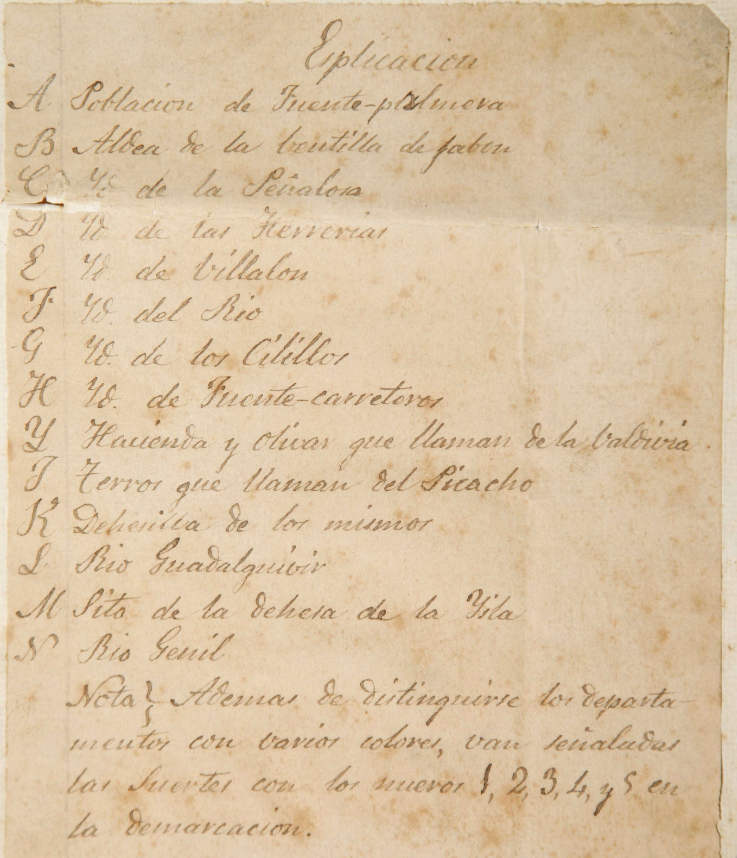 Esplicacion
A Poblacion de Fuente-palmera
B Aldea de la bentilla de jabon
C Yd. de la Peñalosa
D Yd de las Herrerias
E Yd de Villalon
F Yd. del Rio
G Yd. de los Cilillos
H Yd. de Fuente-carreteros
Y Hacienda y olivar que llaman de la baldivia.
J Zerros que llaman del Picacho
K Dehesilla de los mismos
L Rio Guadalquivir
M Sito de la dehesa de la Ysla
N Rio Genil
Nota} Ademas de distinguirse los departa-
mentos con varios colores, van señaladas
las Suertes con los nueros 1, 2, 3, 4, y 5 en
la demarcacion.